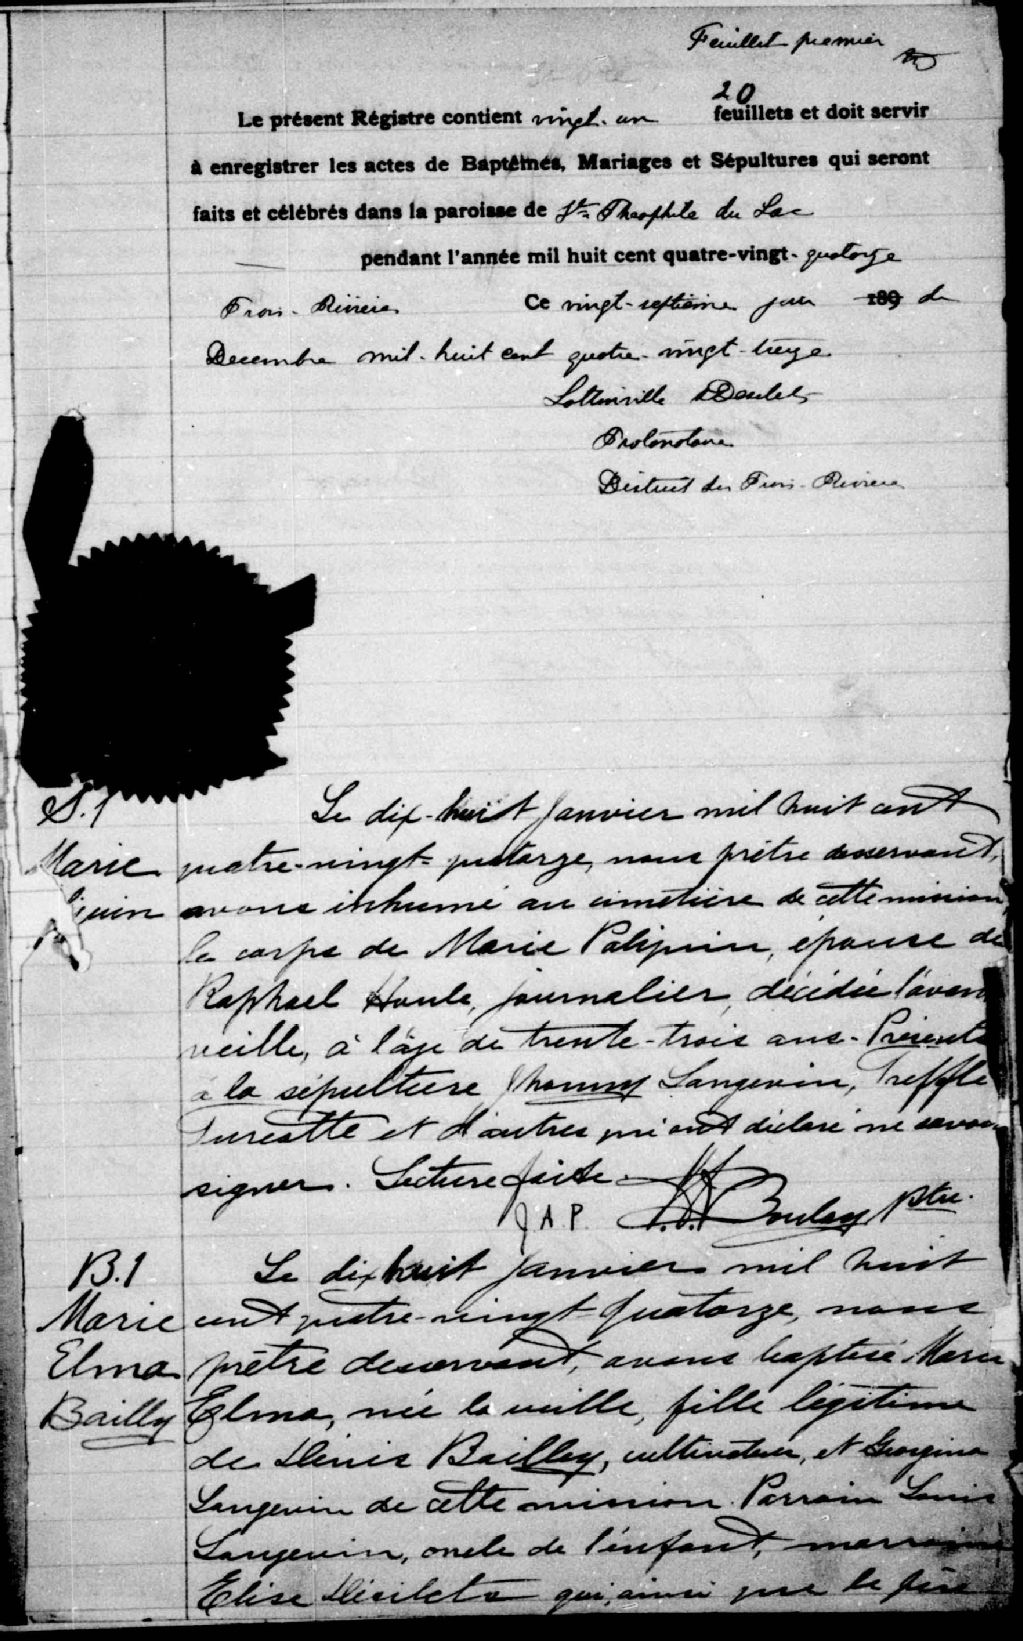 Feuillet premier
20
Le présent Régistre contient vingt-un feuillets et doit servir
à enregistrer les actes de Baptêmes, Mariages et Sépultures qui seront
faits et célébrés dans la paroisse de St. Théophile du Lac
pendant l'année mil huit cent quatre-vingt-quatorze
Trois-Rivières Ce vingt-septième jour 189 de
Decembre mil-huit cent quatre-vingt-treize
Lottinville & Desilets
Protonotaire
District des Trois-Rivières
S.1 Le dix-huit Janvier mil huit cent
Marie quatre-vingt-quatorze, nous prêtre desservant,
avons inhumé au cimetière de cette mission
le corps de Marie, épouse de
Raphael Houle, journalier, décédée l'avant
veille, à l'âge de trente-trois ans. Présents
à la sépulture Jhonny Langevin, Trefflé
Turcotte et d'autres qui ont déclaré ne savoir
signer. Lecture faite.
J A P. Boulay Ptre.
B.1 Le dix huit Janvier mil huit
Marie cent quatre-vingt-quatorze, nous
Elma prêtre desservant, avons baptisé Marie
Bailly Elma, née la veille, fille légitime
de Dénis Bailley, cultivateur, et Georgina
Langevin de cette mission. Parrain Louis
Langevin, oncle de l'enfant, marraine
Elise Désilets qui, ainsi que le père